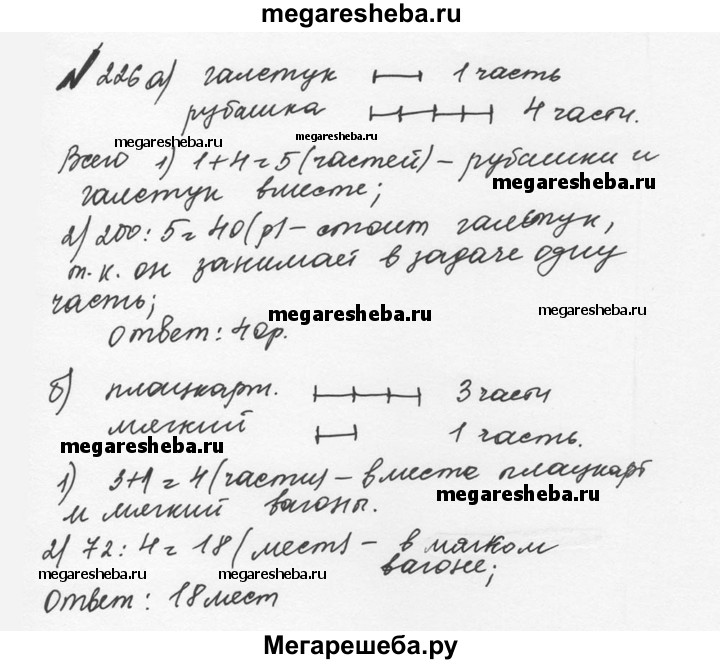 megaresheba.ru
N 226 а) галстук 1 часть
рубашка 4 части.
megaresheba.ru megaresheba.ru
Всего 1) 1+4=5 (частей) - рубашки и
megaresheba.ru
галстук вместе;
2) 200:5=40(р) - стоит галстук,
т.к. он занимает в задаче одну
часть;
megaresheba.ru megaresheba.ru
Ответ: 40р.
б) плацкарт. 3 части
мягкий 1 часть.
megaresheba.ru
1) 3+1=4 (части) - вместе плацкарт
megaresheba.ru
и мягкий вагоны.
2) 72:4=18 (мест) - в мягком
вагоне;
megaresheba.ru megaresheba.ru
Ответ: 18 мест
Мегарешеба.ру